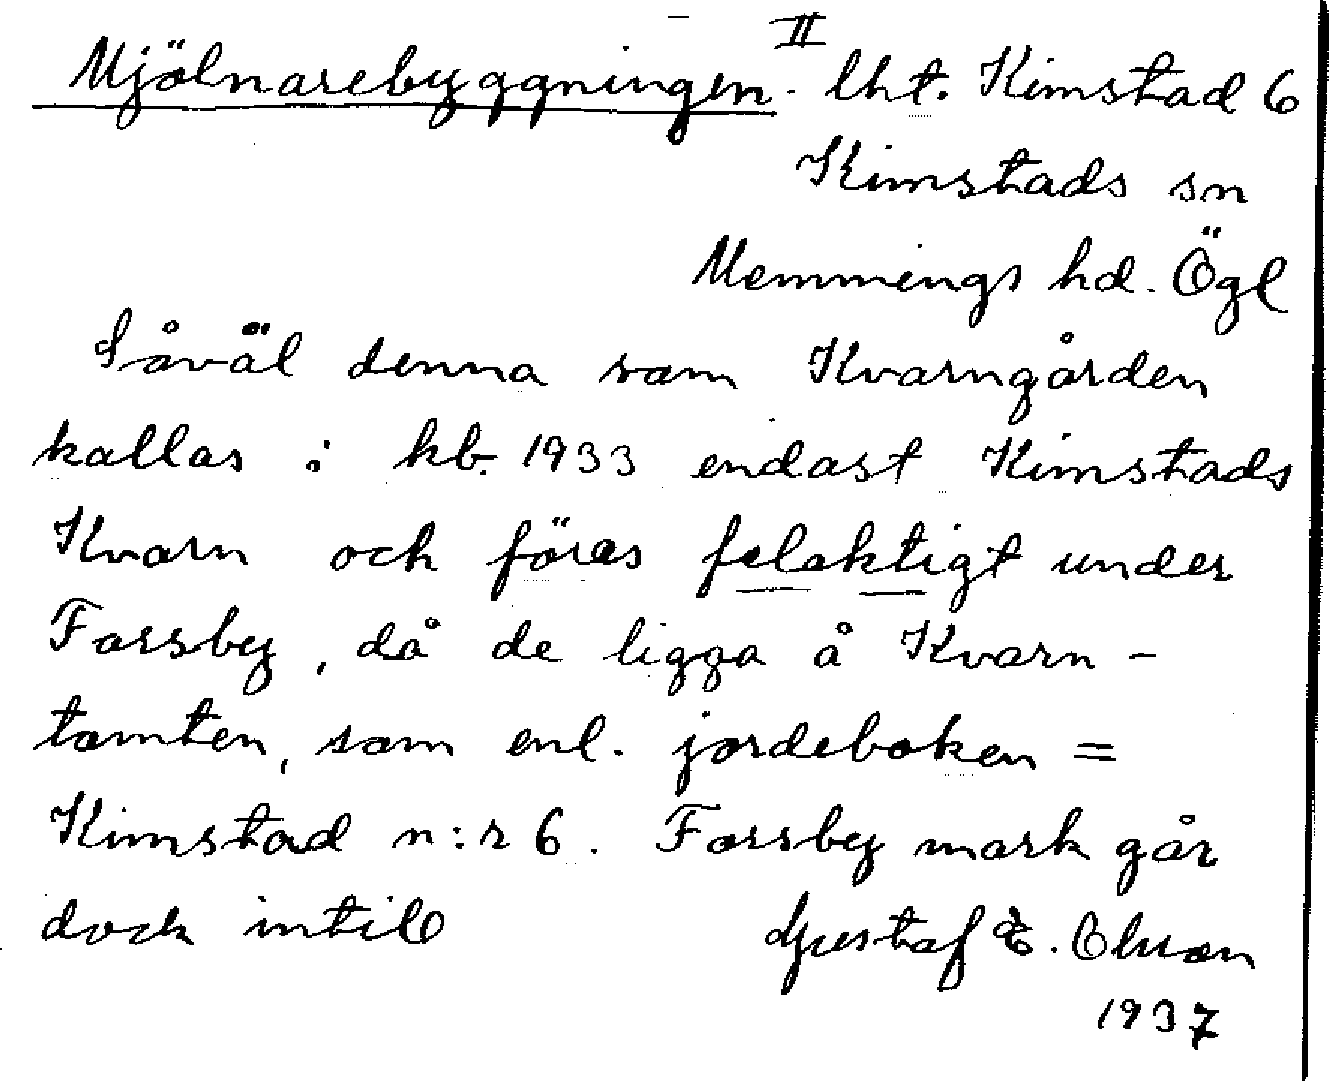 Mjölnarebyggningen II lht. Kimstad 6
Kimstads sn
Memmings hd. Ögl
Såväl denna som Kvarngården
kallas i kb. 1933 endast Kimstads
Kvarn och föres felaktigt under
Forsby, då de ligga å Kvarn-
tomten, som enl. jordeboken =
Kimstad n:r 6. Forsby mark går
dock intill
Gustaf E. Olsson
1937